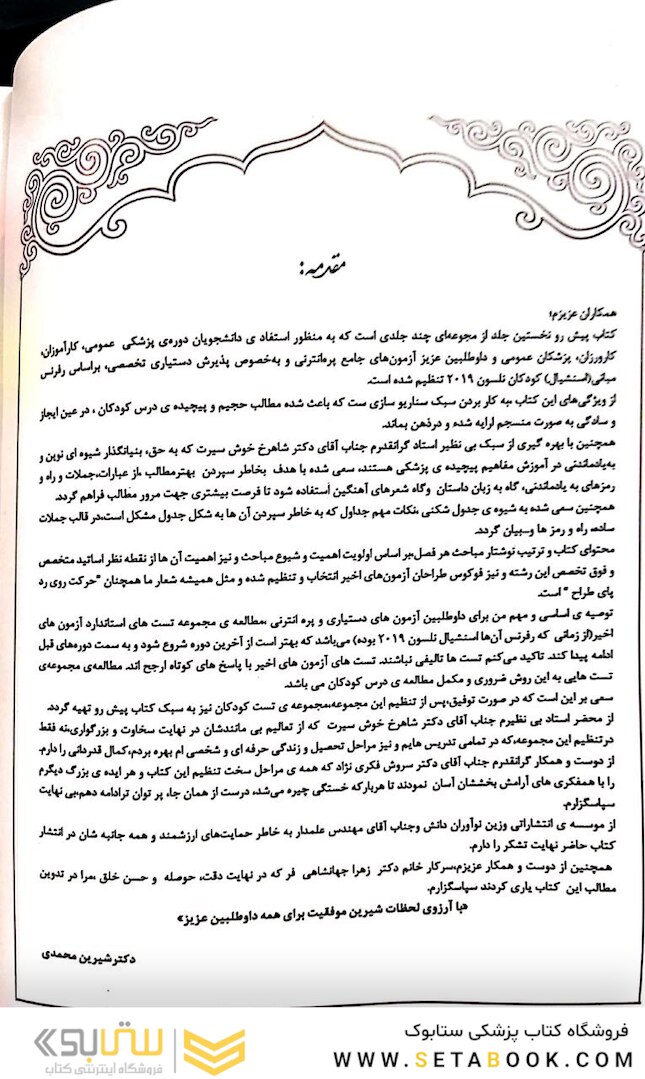 مقدمه:
همکاران عزیزم؛
کتاب پیش رو نخستین جلد از مجوعه‌ای چند جلدی است که به منظور استفاد ی دانشجویان دوره‌ی پزشکی عمومی، کارآموزان،
کارورزان، پزشکان عمومی و داوطلبین عزیز آزمون‌های جامع پره‌انترنی و به‌خصوص پذیرش دستیاری تخصصی، براساس رفرنس
مبانی(اسنشیال) کودکان نلسون ۲۰۱۹ تنظیم شده است.
از ویژگی‌های این کتاب ،به کار بردن سبک سناریو سازی ست که باعث شده مطالب حجیم و پیچیده ی درس کودکان ، در عین ایجاز
و سادگی به صورت منسجم ارایه شده و درذهن بماند.
همچنین با بهره گیری از سبک بی نظیر استاد گرانقدرم جناب آقای دکتر شاهرخ خوش سیرت که به حق، بنیانگذار شیوه ای نوین و
به‌یادماندنی در آموزش مفاهیم پیچیده ی پزشکی هستند، سعی شده با هدف بخاطر سپردن بهترمطالب ،از عبارات،جملات و راه و
رمزهای به یادماندنی، گاه به زبان داستان وگاه شعرهای آهنگین استفاده شود تا فرصت بیشتری جهت مرور مطالب فراهم گردد.
همچنین سعی شده به شیوه ی جدول شکنی ،نکات مهم جداول که به خاطر سپردن آن ها به شکل جدول مشکل است،در قالب جملات
ساده، راه و رمز ها وبیان گردد.
محتوای کتاب و ترتیب نوشتار مباحث هر فصل،بر اساس اولویت اهمیت و شیوع مباحث و نیز اهمیت آن ها از نقطه نظر اساتید متخصص
و فوق تخصص این رشته و نیز فوکوس طراحان آزمون‌های اخیر انتخاب و تنظیم شده و مثل همیشه شعار ما همچنان "حرکت روی رد
پای طراح " است.
توصیه ی اساسی و مهم من برای داوطلبین آزمون های دستیاری و پره انترنی ،مطالعه ی مجموعه تست های استاندارد آزمون های
اخیر(از زمانی که رفرنس آن‌ها اسنشیال نلسون ۲۰۱۹ بوده) می‌باشد که بهتر است از آخرین دوره شروع شود و به سمت دوره‌های قبل
ادامه پیدا کند. تاکید می‌کنم تست ها تالیفی نباشند. تست های آزمون های اخیر با پاسخ های کوتاه ارجح اند. مطالعه‌ی مجموعه‌ی
تست هایی به این روش ضروری و مکمل مطالعه ی درس کودکان می باشد.
سعی بر این است که در صورت توفیق،پس از تنظیم این مجموعه،مجموعه ی تست کودکان نیز به سبک کتاب پیش رو تهیه گردد.
از محضر استاد بی نظیرم جناب آقای دکتر شاهرخ خوش سیرت که از تعالیم بی مانندشان در نهایت سخاوت و بزرگواری،نه فقط
درتنظیم این مجموعه،که در تمامی تدریس هایم و نیز مراحل تحصیل و زندگی حرفه ای و شخصی ام بهره بردم،کمال قدردانی را دارم.
از دوست و همکار گرانقدرم جناب آقای دکتر سروش فکری نژاد که همه ی مراحل سخت تنظیم این کتاب و هر ایده ی بزرگ دیگرم
را با همفکری های آرامش بخششان آسان نمودند تا هربارکه خستگی چیره می‌شد، درست از همان جا، پر توان ترادامه دهم،بی نهایت
سپاسگزارم.
از موسسه ی انتشاراتی وزین نوآوران دانش وجناب آقای مهندس علمدار به خاطر حمایت‌های ارزشمند و همه جانبه شان در انتشار
کتاب حاضر نهایت تشکر را دارم.
همچنین از دوست و همکار عزیزم،سرکار خانم دکتر زهرا جهانشاهی فر که در نهایت دقت، حوصله و حسن خلق ،مرا در تدوین
مطالب این کتاب یاری کردند سپاسگزارم.
«با آرزوی لحظات شیرین موفقیت برای همه داوطلبین عزیز»
دکترشیرین محمدی
فروشگاه کتاب پزشکی ستابوک
WWW.SETABOOK.COM
ستابوک
فروشگاه اینترنتی کتاب